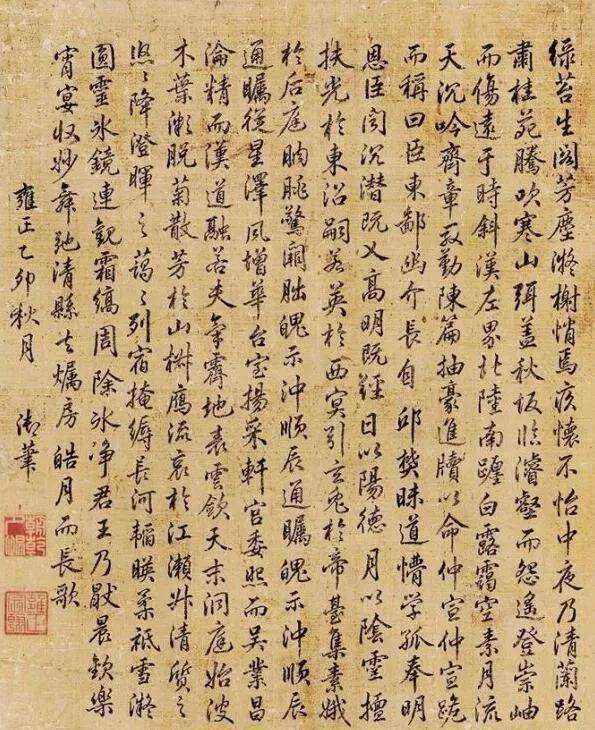 綠苔生閣芳塵凝榭悄焉疚懷不怡中夜乃清蘭路
肅桂苑騰吹寒山弭蓋秋坂臨濬壑而怨遙登崇岫
而傷遠于時斜漢左界北陸南躔白露靄空素月流
天沉吟齊章殷勤陳篇抽豪進牘以命仲宣仲宣跪
而稱曰臣東鄙幽介長自邱樊昧道懵學孤奉明
恩臣聞沉潛既乂高明既經日以陽德月以陰靈擅
扶光於東沼嗣若英於西冥引玄兔於帝臺集素娥
於后庭朒朓驚闕朏魄示沖順辰通矚魄示沖順辰
通矚從星澤風增華台室揚采軒宮委照而吳業昌
淪精而漢道融若夫氣霽地表雲斂天末洞庭始波
木葉漸脫菊散芳於山椒鴈流哀於江瀨升清質之
悠〻降澄暉之藹〻列宿掩縟長河韜暎柔祇雪凝
圓靈水鏡連觀霜縞周除冰淨君王乃厭晨歡樂
宵宴收妙舞弛清縣去燭房皓月而長歌
雍正乙卯秋月 御筆